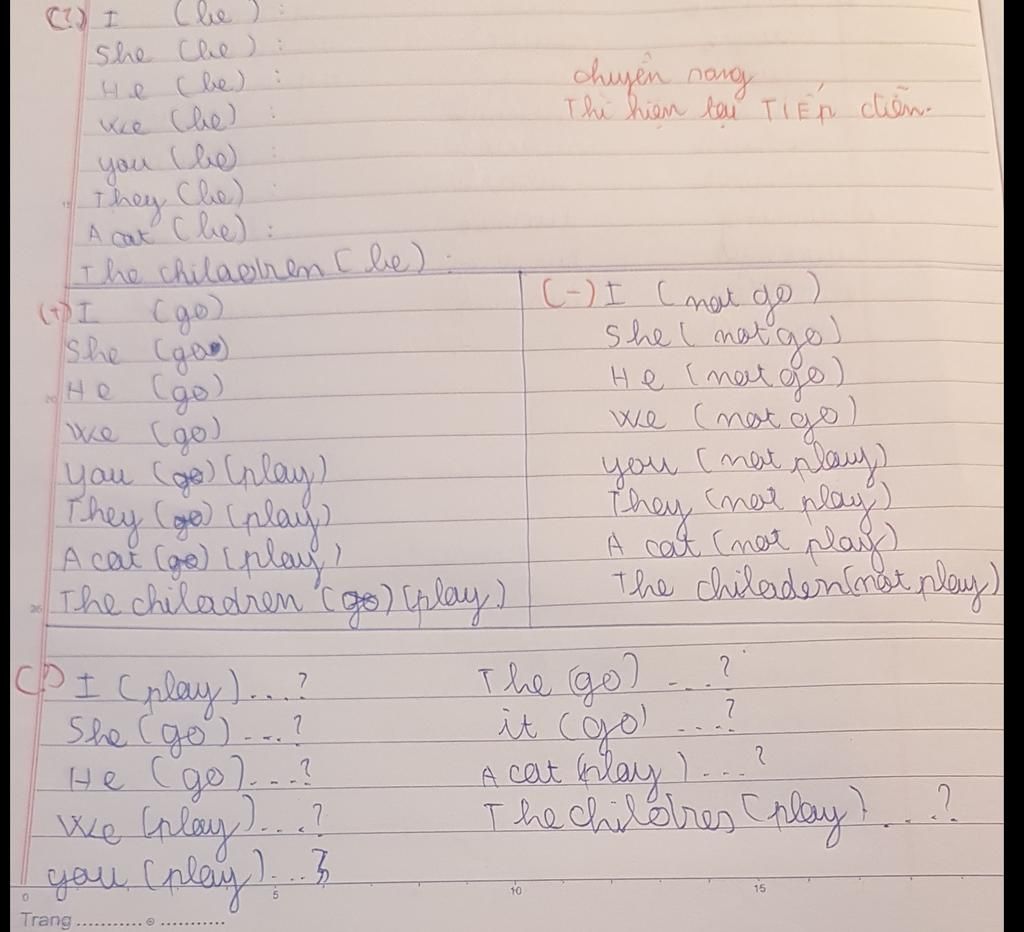 (?) I (be) :
She (be) :
He (be) :
We (be) :
you (be) :
They (be)
A cat (be) :
The chiladren (be) :
chuyển sang
Thì hiện tại TIẾP diễn.
(+) I (go)
She (go)
He (go)
We (go)
you (go) (play)
They (go) (play)
A cat (go) (play)
The chiladren (go) (play)
(-) I (not go)
She (not go)
He (not go)
We (not go)
you (not play)
They (not play)
A cat (not play)
The chiladen (not play)
(?) I (play) ...?
She (go) ...?
He (go) ...?
We (play) ...?
you (play) ...?
The (go) ...?
it (go) ...?
A cat (play) ...?
The childres (play) ...?
0 5 10 15
Trang